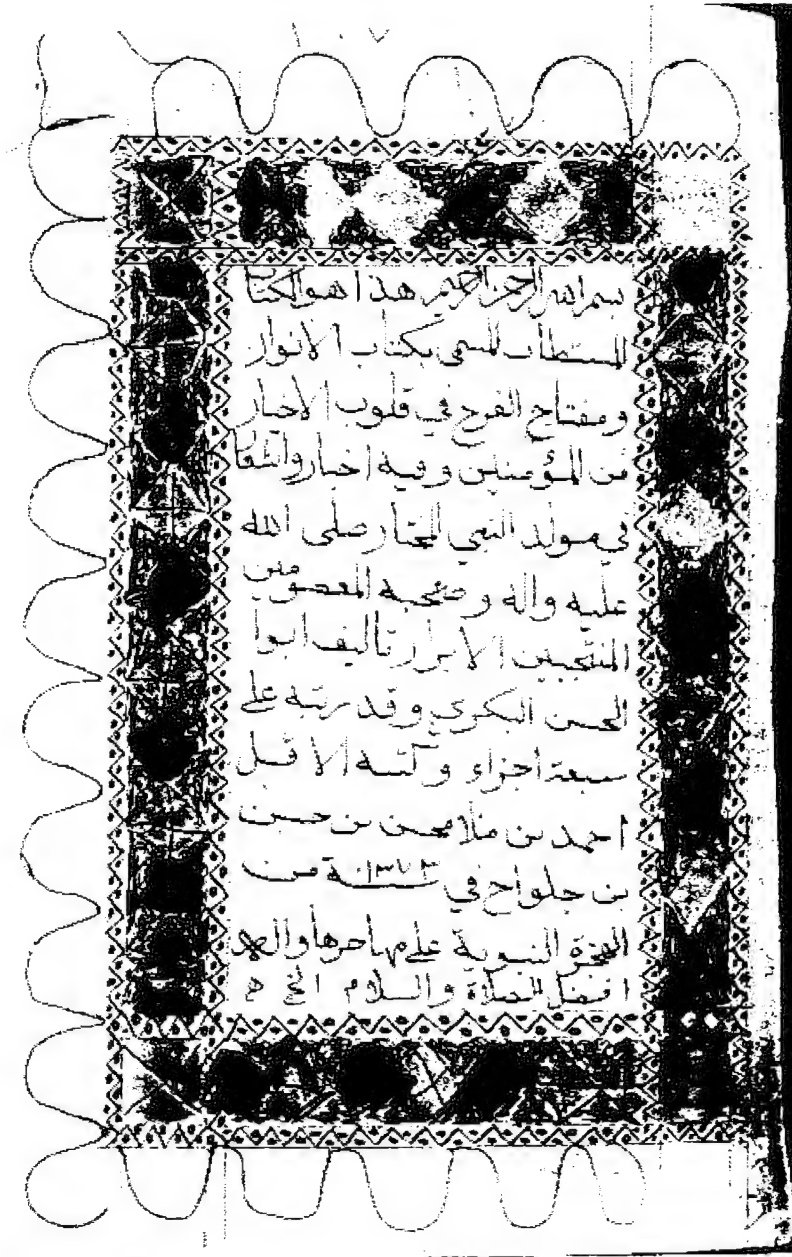 بسم الله الرحمن الرحيم هذا هو الكتاب
المستطاب المسمى بكتاب الانوار
ومفتاح الفرح في قلوب الاخيار
من المؤمنين وفيه اخبار وانتقا
في مولد النبي المختار صلى الله
عليه واله وصحبه المعصومين
المنتجبين الابرار تأليف ابوا
الحسن البكري وقد رتبه على
سبعة اجزاء وكتبه الاقل
احمد بن ملا محسن بن حسين
بن جلواح في سنة ١٣٧٣ من
الهجرة النبوية على مهاجرها واله
افضل الصلاة والسلام الخ م